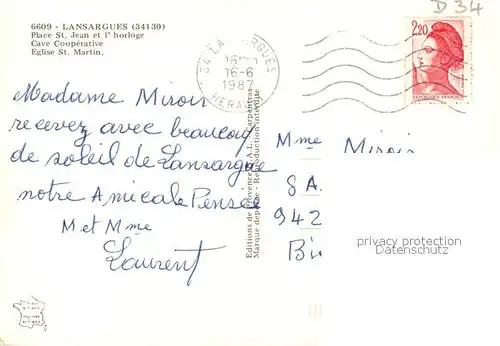 D 34
6609 - LANSARGUES (34130)
Place St. Jean et l' horloge
Cave Coopérative
Eglise St. Martin.
34 LANSARGUES
16-6
1987
HERAULT
2,20
REPUBLIQUE FRANÇAISE
Madame Miroir
recevez avec beaucoup
de soleil de Lansargue
notre Amicale Pensée
M et Mme
Laurent
Editions de Provence A.L. Carpentras
Marque déposée - Reproduction interdite
Mme Miroir
8 A.
942
privacy protection
Datenschutz